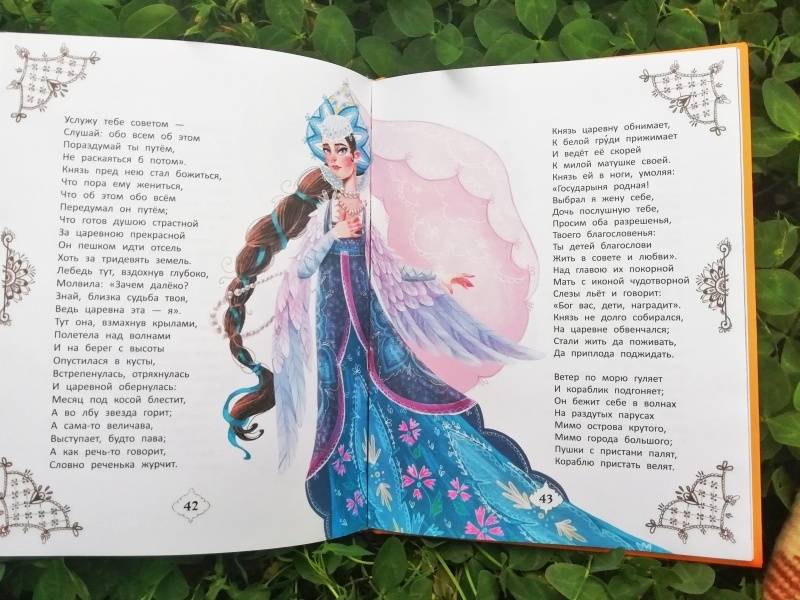 Услужу тебе советом —
Слушай: обо всем об этом
Пораздумай ты путём,
Не раскаяться б потом».
Князь пред нею стал божиться,
Что пора ему жениться,
Что об этом обо всём
Передумал он путём;
Что готов душою страстной
За царевною прекрасной
Он пешком идти отсель
Хоть за тридевять земель.
Лебедь тут, вздохнув глубоко,
Молвила: «Зачем далёко?
Знай, близка судьба твоя,
Ведь царевна эта — я».
Тут она, взмахнув крылами,
Полетела над волнами
И на берег с высоты
Опустилася в кусты,
Встрепенулась, отряхнулась
И царевной обернулась:
Месяц под косой блестит,
А во лбу звезда горит;
А сама-то величава,
Выступает, будто пава;
А как речь-то говорит,
Словно реченька журчит.
42
Князь царевну обнимает,
К белой гру́ди прижимает
И ведёт её скорей
К милой матушке своей.
Князь ей в ноги, умоляя:
«Государыня родная!
Выбрал я жену себе,
Дочь послушную тебе,
Просим оба разрешенья,
Твоего благословенья:
Ты детей благослови
Жить в совете и любви».
Над главою их покорной
Мать с иконой чудотворной
Слезы льёт и говорит:
«Бог вас, дети, наградит».
Князь не долго собирался,
На царевне обвенчался;
Стали жить да поживать,
Да приплода поджидать.
Ветер по морю гуляет
И кораблик подгоняет;
Он бежит себе в волнах
На раздутых парусах
Мимо острова крутого,
Мимо города большого;
Пушки с пристани палят,
Кораблю пристать велят.
43